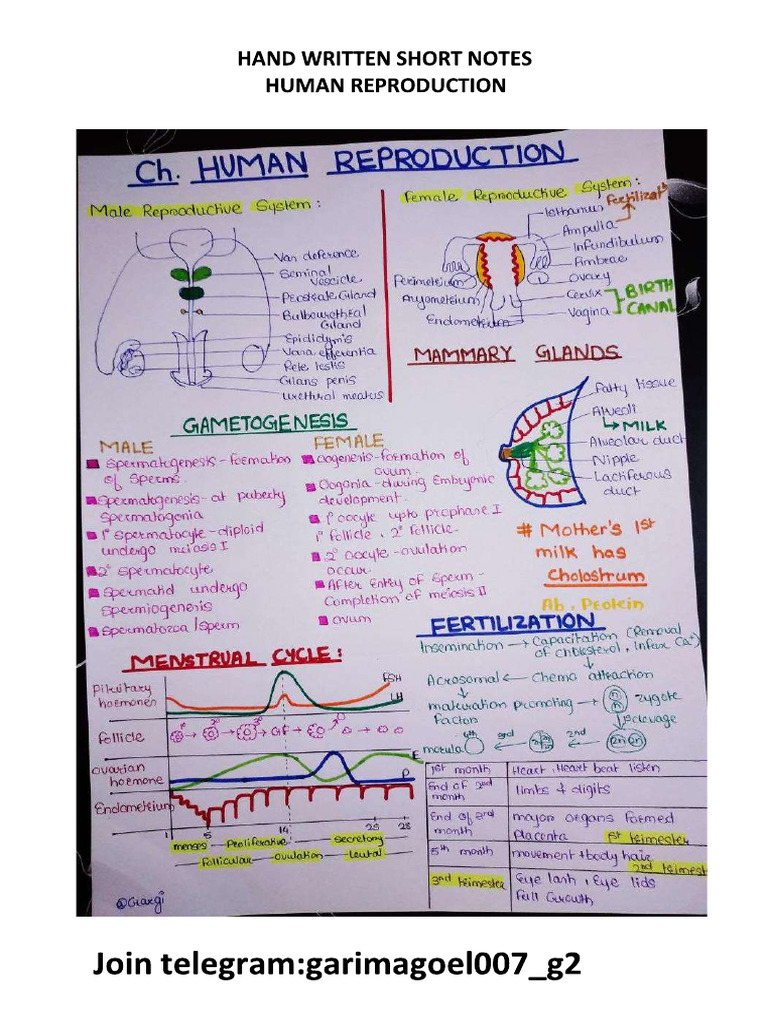 HAND WRITTEN SHORT NOTES
HUMAN REPRODUCTION
Ch. HUMAN REPRODUCTION
Male Reproductive System:
Van deference
Seminal
Vescicle
Prostate Gland
Bulbourethral
Gland
Epididymis
Vasa efferentia
Rete testis
Glans penis
Urethral meatus
Female Reproductive System:
Isthamus
Fertilizatn
Ampulla
Infundibulum
Fimbrae
Ovary
Cervix
Vagina
BIRTH
CANAL
Perimetrium
Myometrium
Endometrium
MAMMARY GLANDS
Fatty tissue
Alveoli
MILK
Alveolar duct
Nipple
Lactiferous
duct
# Mother's 1st
milk has
Cholostrum
Ab, Protein
GAMETOGENESIS
MALE
Spermatogenesis-formation
of sperms.
Spermatogenesis-at puberty
spermatogonia
1° spermatocyte-diploid
undergo meiosis I
2° spermatocyte
Spermatid undergo
spermiogenesis
Spermatozoa/sperm
FEMALE
Oogenesis-formation of
ovum.
Oogonia-during Embryonic
development.
1° oocyte upto prophase I
1° follicle, 2° follicle.
2° oocyte-ovulation
occur.
After Entry of sperm-
Completion of meiosis II
ovum
FERTILIZATION
Insemination → Capacitation (Removal
of cholesterol, influx Ca+)
Acrosomal ← Chemo attraction
maturation promoting →
Factors
n
n
zygote
cleavage
morula
3rd
2nd
2n 2n
MENSTRUAL CYCLE:
Pituitary
hormones
FSH
LH
Follicle
1°
2°
3°
GF
Ovarian
hormone
E
P
Endometrium
1
5
14
25
28
menses
Proliferative
secretory
follicular
ovulation
leutal
1st month
Heart, Heart beat listen
End of 2nd
month
limbs & digits
End of 3rd
month
major organs formed
Placenta
1st trimester
5th month
movement + body hair
2nd trimest
3rd trimester
Eye lash, Eye lids
Full Growth
@Gargi
Join telegram:garimagoel007_g2